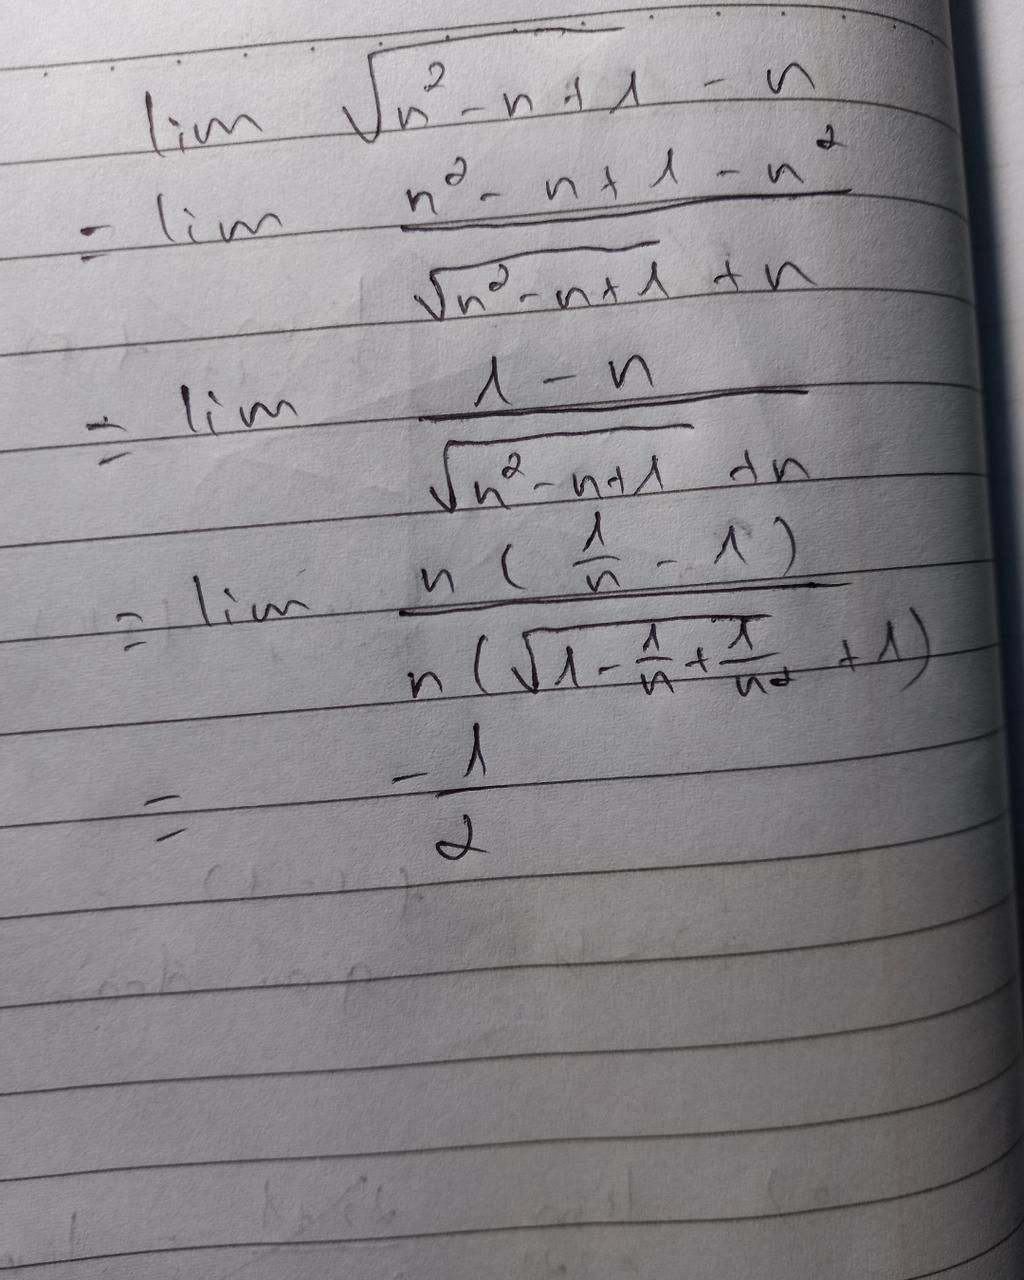 lim √(n² - n + 1) - n
= lim (n² - n + 1 - n²) / (√(n² - n + 1) + n)
= lim (1 - n) / (√(n² - n + 1) + n)
= lim n(1/n - 1) / n(√(1 - 1/n + 1/n²) + 1)
= -1/2